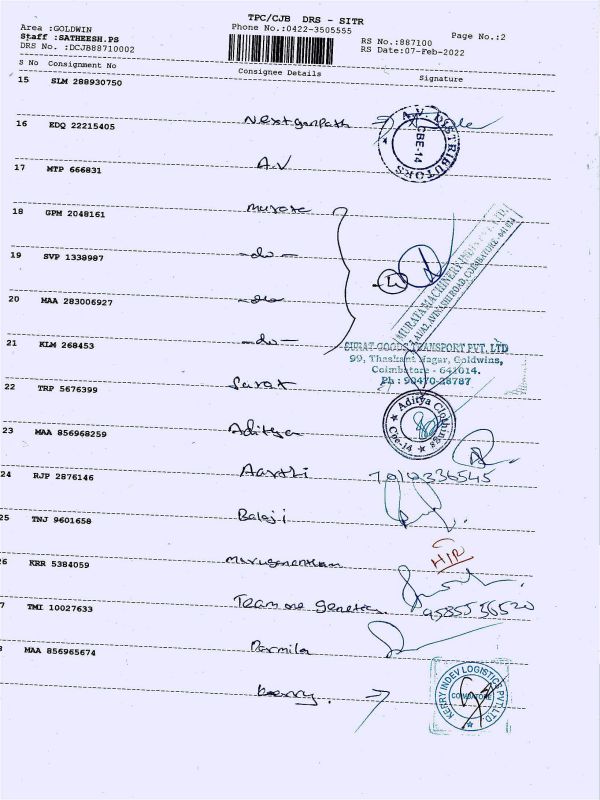 TPC/CJB DRS - SITR
Area :GOLDWIN
Phone No.:0422-3505555
Page No.:2
Staff :SATHEESH.PS
RS No.:887100
DRS No. :DCJB88710002
RS Date:07-Feb-2022
S No Consignment No
Consignee Details
Signature
15 SLM 288930750
Nextgenpath
16 EDQ 22215405
A.V. DISTRIBUTORS
CBE-14
A.V
17 MTP 666831
murata
18 GPM 2048161
MURATA MACHINERY INDIA PVT. LTD.
AVINASHI ROAD, COIMBATORE - 641 014
-do-
19 SVP 1338987
-do-
20 MAA 283006927
-do-
21 KLM 268453
SURAT GOODS TRANSPORT PVT. LTD
99, Thaskant Nagar, Goldwins,
Coimbatore - 641014.
Ph : 90470-28787
Surat
22 TRP 5676399
Aditya Clothings
Cbe-14
Aditya
23 MAA 856968259
Aarthi
24 RJP 2876146
Balaji
25 TNJ 9601658
Muruganantham
26 KRR 5384059
Team one genetics
9585536520
7 TMI 10027633
Parmila
8 MAA 856965674
kerry.
KERRY INDEV LOGISTICS PVT. LTD
COIMBATORE